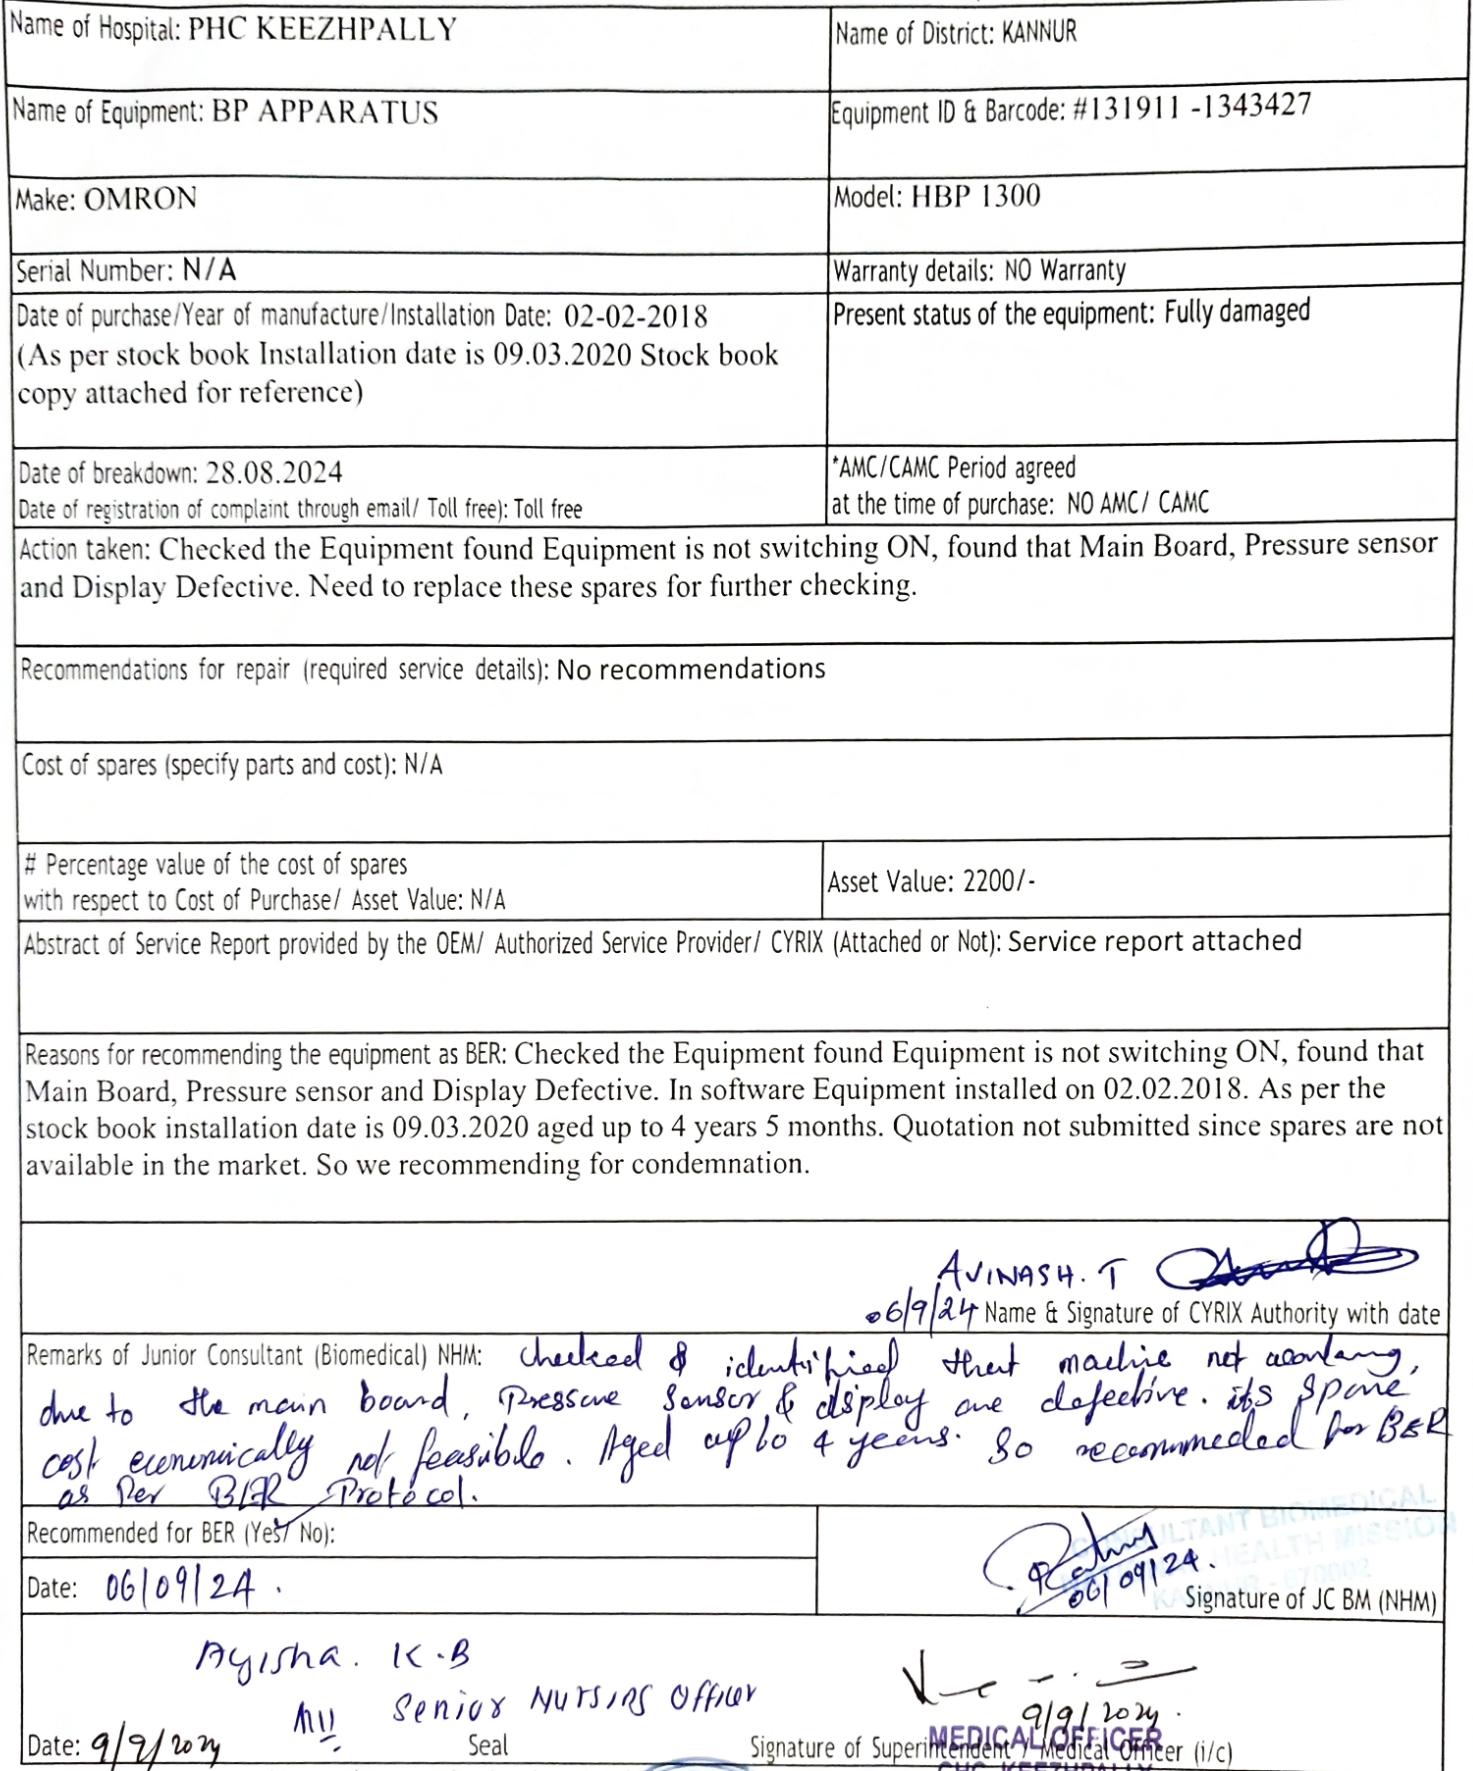 Name of Hospital: PHC KEEZHPALLY
Name of District: KANNUR
Name of Equipment: BP APPARATUS
Equipment ID & Barcode: #131911 -1343427
Make: OMRON
Model: HBP 1300
Serial Number: N/A
Warranty details: NO Warranty
Date of purchase/Year of manufacture/Installation Date: 02-02-2018
(As per stock book Installation date is 09.03.2020 Stock book
copy attached for reference)
Present status of the equipment: Fully damaged
Date of breakdown: 28.08.2024
Date of registration of complaint through email/ Toll free): Toll free
*AMC/CAMC Period agreed
at the time of purchase: NO AMC/ CAMC
Action taken: Checked the Equipment found Equipment is not switching ON, found that Main Board, Pressure sensor
and Display Defective. Need to replace these spares for further checking.
Recommendations for repair (required service details): No recommendations
Cost of spares (specify parts and cost): N/A
# Percentage value of the cost of spares
with respect to Cost of Purchase/ Asset Value: N/A
Asset Value: 2200/-
Abstract of Service Report provided by the OEM/ Authorized Service Provider/ CYRIX (Attached or Not): Service report attached
Reasons for recommending the equipment as BER: Checked the Equipment found Equipment is not switching ON, found that
Main Board, Pressure sensor and Display Defective. In software Equipment installed on 02.02.2018. As per the
stock book installation date is 09.03.2020 aged up to 4 years 5 months. Quotation not submitted since spares are not
available in the market. So we recommending for condemnation.
AVINASH. T
06/9/24 Name & Signature of CYRIX Authority with date
Remarks of Junior Consultant (Biomedical) NHM: checked & identified that machine not working,
due to the main board, Pressure Sensor & display are defective. its spare
cost economically not feasible. Aged up to 4 years. So recommeded for BER
as Per BER Protocol.
Recommended for BER (Yes/ No):
CONSULTANT BIOMEDICAL
HEALTH MISSION
KANNUR - 670002
Date: 06/09/24.
06/09/24.
Signature of JC BM (NHM)
Ayisha. K.B
Senior Nursing Officer
9/9/2024.
Date: 9/9/2024
Seal
Signature of Superintendent / Medical Officer (i/c)
MEDICAL OFFICER
KEEZHPALLY